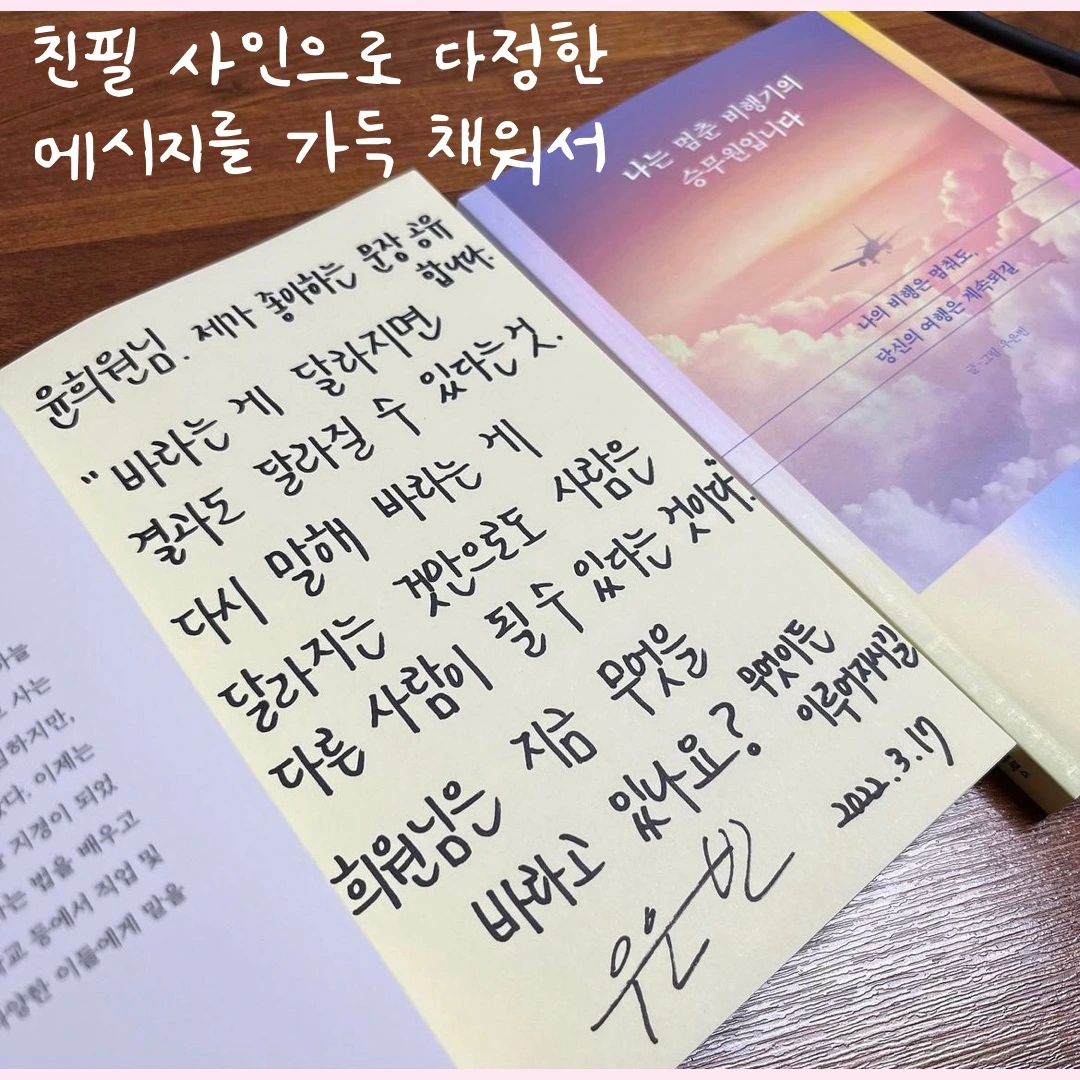 친필 사인으로 다정한
메시지를 가득 채워서
윤희원님. 제가 좋아하는 문장 공유
합니다.
"바라는 게 달라지면
결과도 달라질 수 있다는 것.
다시 말해 바라는 게
달라지는 것만으로도 사람은
다른 사람이 될 수 있다는 것이다."
희원님은 지금 무엇을
바라고 있나요? 무엇이든
이루어지시길
2022.3.17
우은빈
나는 멈춘 비행기의
승무원입니다
나의 비행은 멈춰도,
당신의 여행은 계속되길
글·그림 우은빈
사는
하지만,
다. 이제는
지경이 되었
는 법을 배우고
교 등에서 직업 및
양한 이들에게 말을